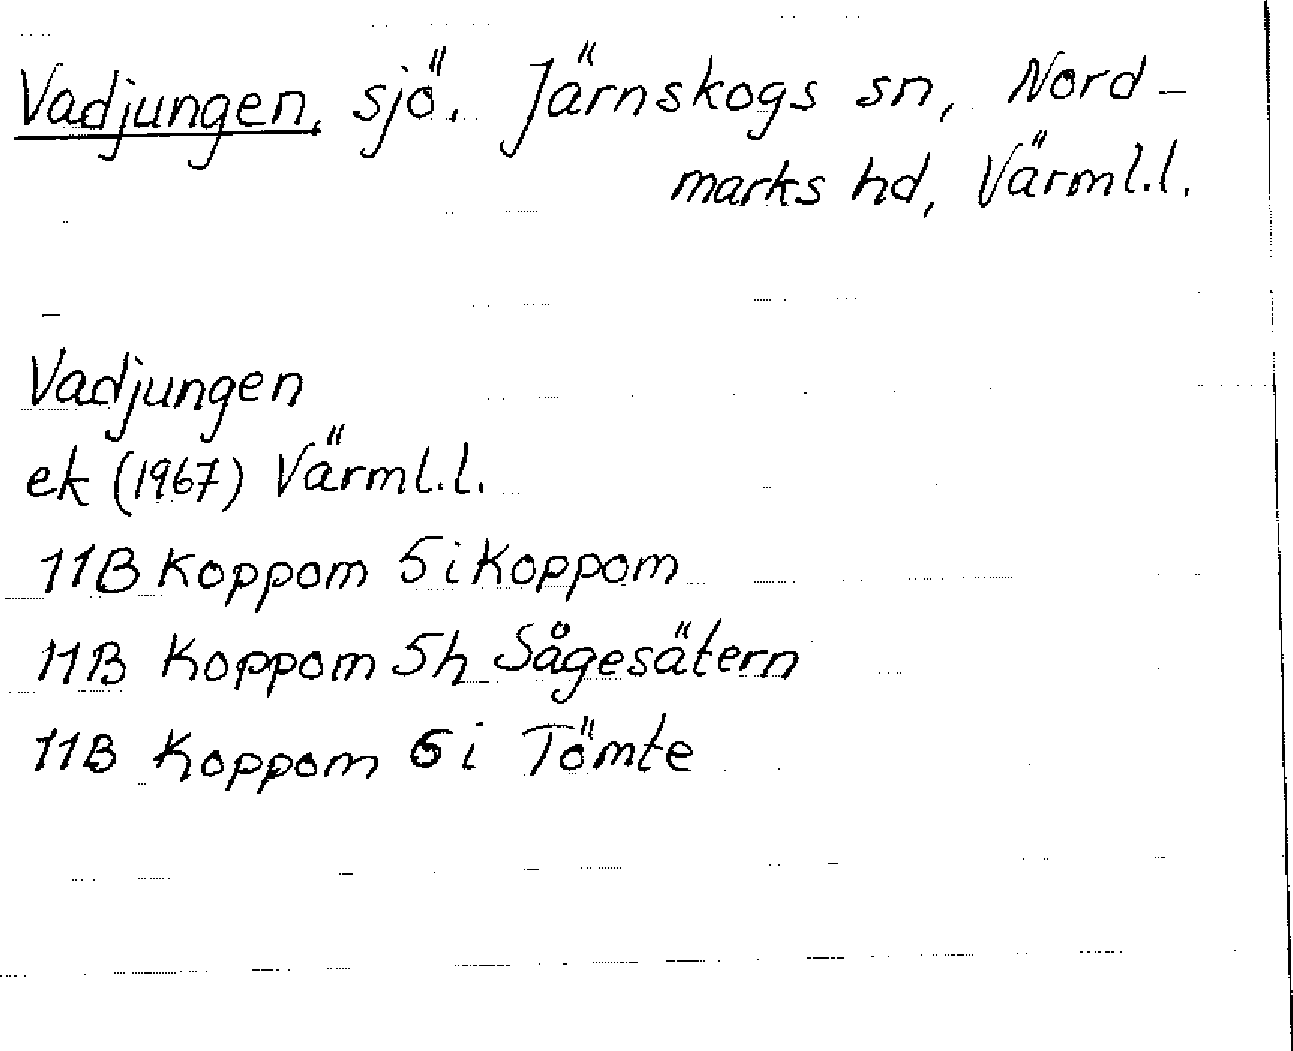 Vadjungen, sjö. Järnskogs sn, Nord-
marks hd, Värml.l.
Vadjungen
ek (1967) Värml.l.
11B Koppom 5i Koppom
11B Koppom 5h Sågesätern
11B Koppom 6i Tömte